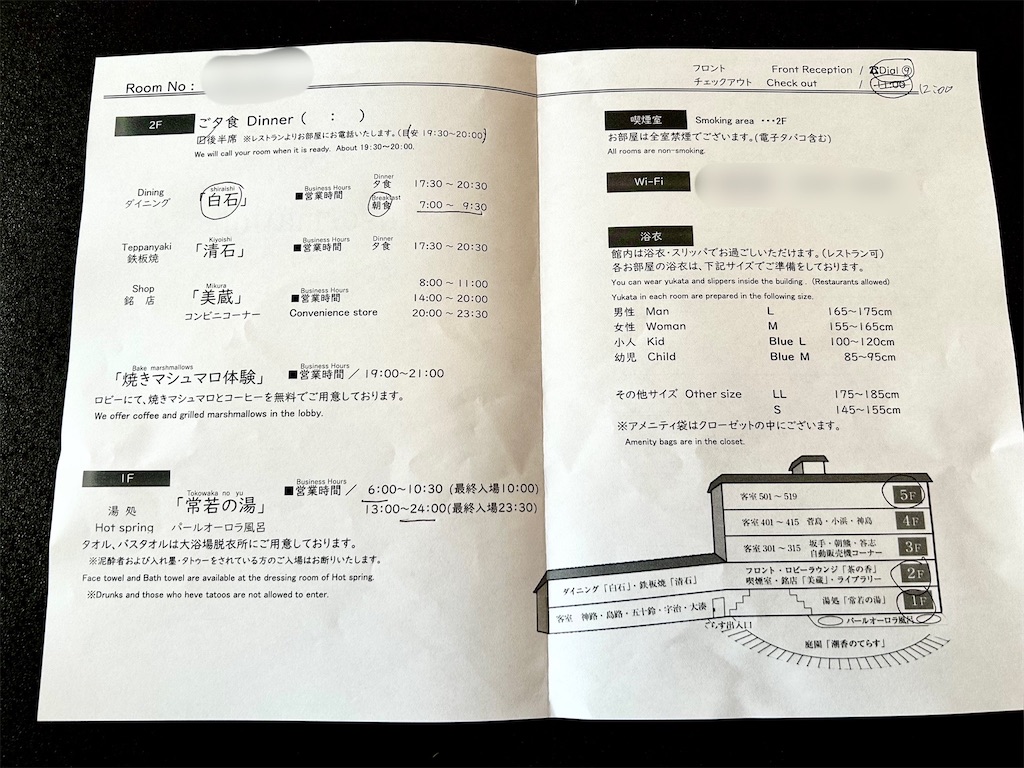 Room No :
2F
ご夕食 Dinner (　:　)
後半席 ※レストランよりお部屋にお電話いたします。(目安 19:30~20:00)
We will call your room when it is ready. About 19:30~20:00.
Dining
ダイニング
shiraishi
「白石」
Business Hours
■営業時間
Dinner
夕食 17:30 ~ 20:30
Breakfast
朝食 7:00 ~ 9:30
Teppanyaki
鉄板焼
Kiyoishi
「清石」
Business Hours
■営業時間
Dinner
夕食 17:30 ~ 20:30
Shop
銘 店
Mikura
「美蔵」
コンビニコーナー
Business Hours
■営業時間
Convenience store
8:00 ~ 11:00
14:00 ~ 20:00
20:00 ~ 23:30
Bake marshmallows
「焼きマシュマロ体験」
Business Hours
■営業時間 / 19:00~21:00
ロビーにて、焼きマシュマロとコーヒーを無料でご用意しております。
We offer coffee and grilled marshmallows in the lobby.
1F
湯 処
Hot spring
Tokowaka no yu
「常若の湯」
パールオーロラ風呂
Business Hours
■営業時間 / 6:00~10:30 (最終入場10:00)
13:00~24:00(最終入場23:30)
タオル、バスタオルは大浴場脱衣所にご用意しております。
※泥酔者および入れ墨・タトゥーをされている方のご入場はお断りいたします。
Face towel and Bath towel are available at the dressing room of Hot spring.
※Drunks and those who heve tatoos are not allowed to enter.
フロント Front Reception / ☎Dial 9
チェックアウト Check out / 11:00 12:00
喫煙室 Smoking area ･･･2F
お部屋は全室禁煙でございます。(電子タバコ含む)
All rooms are non-smoking.
Wi-Fi
浴衣
館内は浴衣・スリッパでお過ごしいただけます。(レストラン可)
各お部屋の浴衣は、下記サイズでご準備をしております。
You can wear yukata and slippers inside the building . (Restaurants allowed)
Yukata in each room are prepared in the following size.
男性 Man L 165~175cm
女性 Woman M 155~165cm
小人 Kid Blue L 100~120cm
幼児 Child Blue M 85~95cm
その他サイズ Other size LL 175~185cm
S 145~155cm
※アメニティ袋はクローゼットの中にございます。
Amenity bags are in the closet.
客室 501~519 5F
客室 401~415 菅島・小浜・神島 4F
客室 301~315 坂手・朝熊・答志
自動販売機コーナー 3F
ダイニング「白石」・鉄板焼「清石」
フロント・ロビーラウンジ「茶の香」
喫煙室・銘店「美蔵」・ライブラリー 2F
客室 神路・島路・五十鈴・宇治・大湊
湯処「常若の湯」 1F
てらす出入口
パールオーロラ風呂
庭園「潮香のてらす」